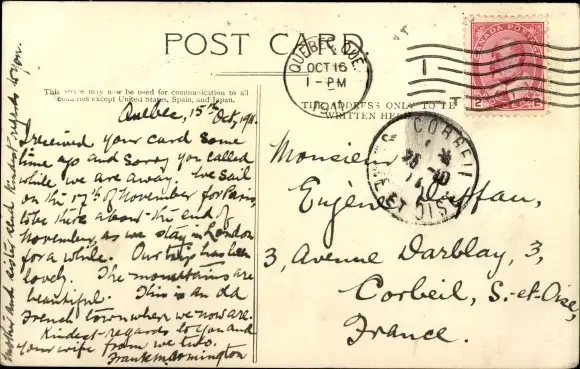 POST CARD
This space may now be used for communication to all
Countries except United States, Spain, and Japan.
THE ADDRESS ONLY TO BE
WRITTEN HERE
QUEBEC, QUE.
OCT 16
1 - PM
CANADA POSTAGE
2
CORBEIL
SEINE ET
25
10
Quebec, 15th Oct, 1911.
I received your card some
time ago and sorry you called
while we are away. We sail
on the 17th of November for Paris,
to be there about the end of
November, as we stay in London
for a while. Our trip has been
lovely. The mountains are
beautiful. This is an old
French town where we now are.
Kindest regards to you and
your wife from we two.
Frank M. Armington
Mother and sister send kindest regards to you.
Monsieur
Eugène Duffau,
3, Avenue Darblay, 3,
Corbeil, S.-et-Oise,
France.